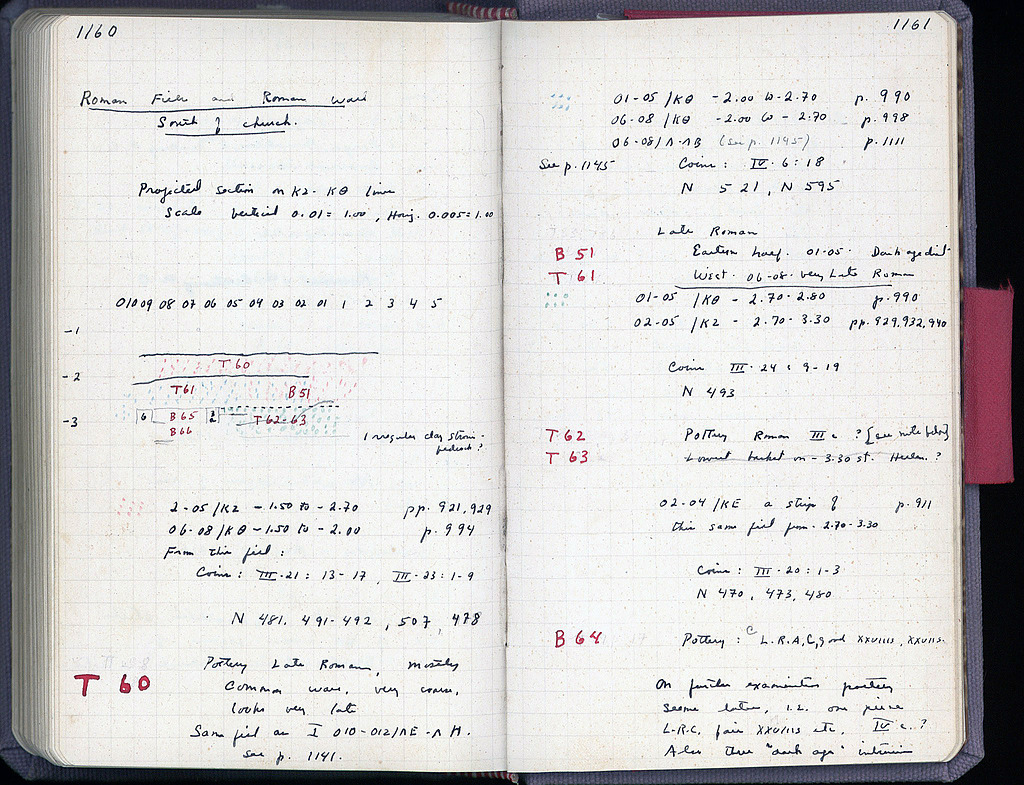 1160
Roman Fill and Roman ward
South of church.
Projected section on K2 - Kθ line
Scale vertical 0.01 = 1.00, Horiz. 0.005 = 1.00
010 09 08 07 06 05 04 03 02 01 1 2 3 4 5
-1
T 60
-2
T61 B51
-3
6 B65 T62-63
B66
1 irregular clay
2-05/K2 -1.50 to -2.70 pp. 921, 929
06-08/Kθ -1.50 to -2.00 p. 994
From this fill:
Coins: III·21: 13-17, III·23: 1-9
N 481, 491-492, 507, 478
Pottery Late Roman, mostly
T 60
Common ware, very coarse,
looks very late
Same fill as I 010-012/ΛE-ΛH.
see p. 1141.
1161
01-05/Kθ -2.00 to -2.70 p. 990
06-08/Kθ -2.00 to -2.70 p. 998
06-08/Λ-ΛB (see p. 1145) p. 1111
See p. 1145 Coins: IV·6: 18
N 521, N 595
Late Roman
B 51 Eastern half. 01-05. Dark age dist-
T 61 West. 06-08. very Late Roman
01-05/Kθ -2.70-2.80 p. 990
02-05/K2 - 2.70-3.30 pp. 929, 932, 940
Coins III·24: 9-19
N 493
T 62 Pottery Roman III c ? {see note below}
T 63 Lowest basket on -3.30 st. Hellen.?
02-04/KE a strip of p. 911
this same fill from -2.70-3.30
Coins: III·20: 1-3
N 470, 473, 480
B 64 Pottery: C L.R.A, C, good XXVIIIs, XXVIIs.
On further examination pottery
seems later, i.e. one piece
L.R.C, fair XXVIIIs etc, IV c.?
Also three "dark age"